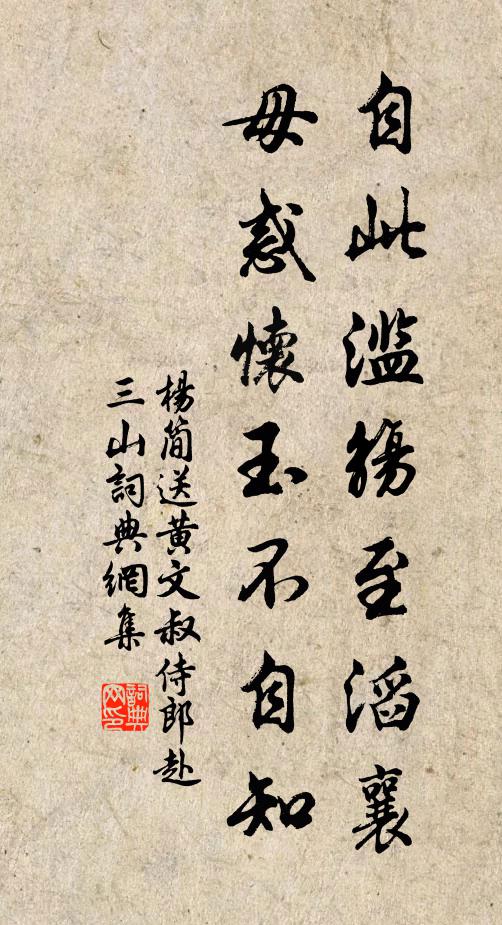 自此濫觴至滔襄
毋惑懷玉不自知
楊简送黄文叔侍郎赴
三山詞典網集
詞典网印